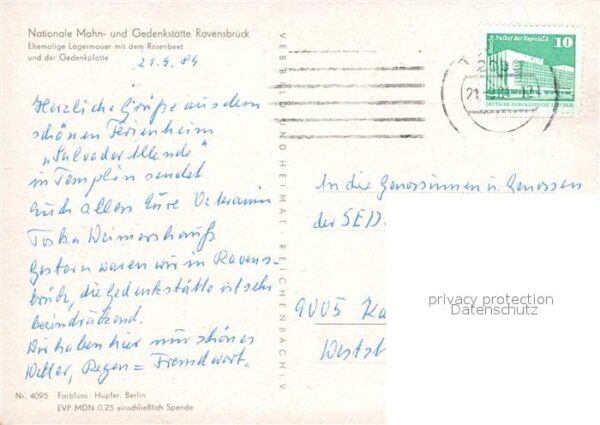 Nationale Mahn- und Gedenkstätte Ravensbrück
Ehemalige Lagermauer mit dem Rosenbeet
und der Gedenkplatte
21.9.84
Herzliche Grüße aus dem
schönen Ferienheim
"Salvador Allende"
in Templin sendet
Euch allen Eure Veteranin
Toska
Gestern waren wir in Ravens-
brück, die Gedenkstätte ist sehr
beeindruckend.
Wir haben hier nur schönes
Wetter, Regen = Fremdwort.
Nr. 4095 Farbfoto: Hupfer, Berlin
EVP MDN 0,25 einschließlich Spende
VEB BILD UND HEIMAT · REICHENBACH i. V.
Berlin Palast der Republik
10
DEUTSCHE DEMOKRATISCHE REPUBLIK
An die Genossinnen u. Genossen
der SED
9005 Ka
Weststr
privacy protection
Datenschutz